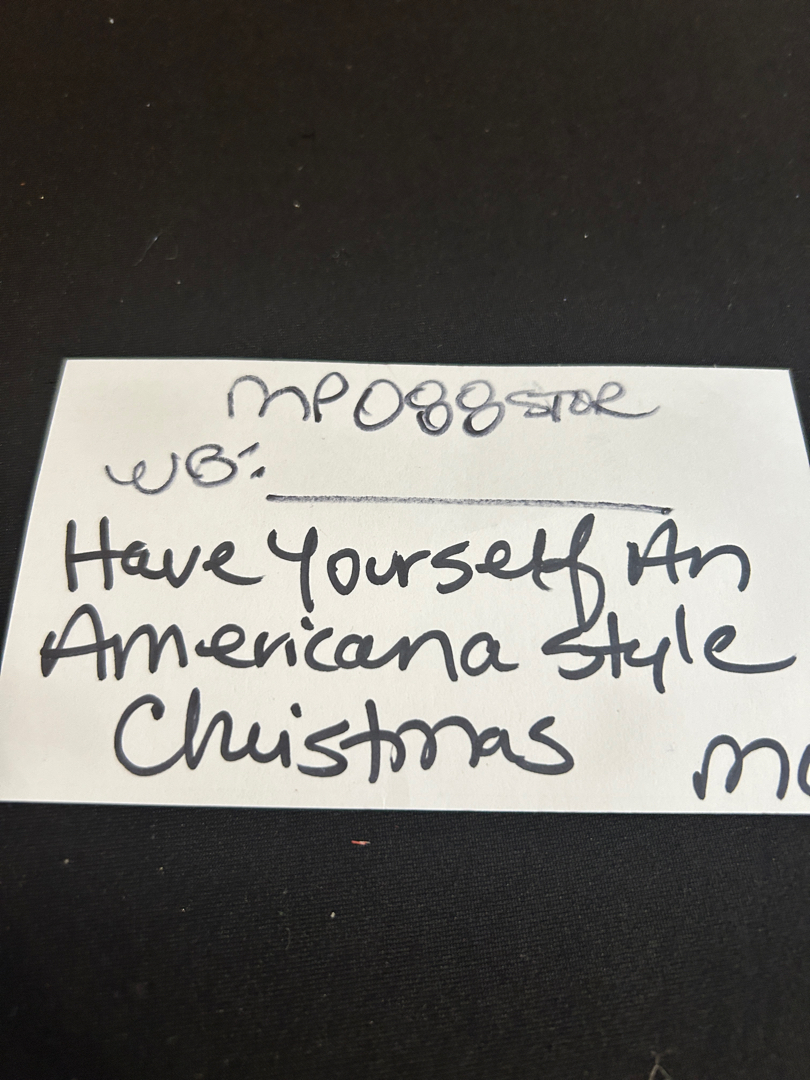 MP088STOR
WB:
Have Yourself An
Americana Style
Christmas